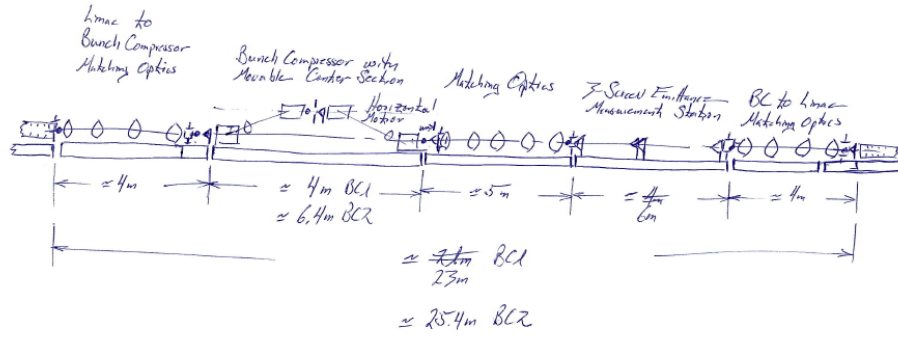 Linac to
Bunch Compressor
Matching Optics
Bunch Compressor with
Movable Center Section
Horizontal
Motion
Matching Optics
3-Screen Emittance
Measurement Station
BC to Linac
Matching Optics
≈ 4m
≈ 4m BC1
≈ 6.4m BC2
≈ 5m
≈ 4m
6m
≈ 4m
≈ 21m BC1
23m
≈ 25.4m BC2